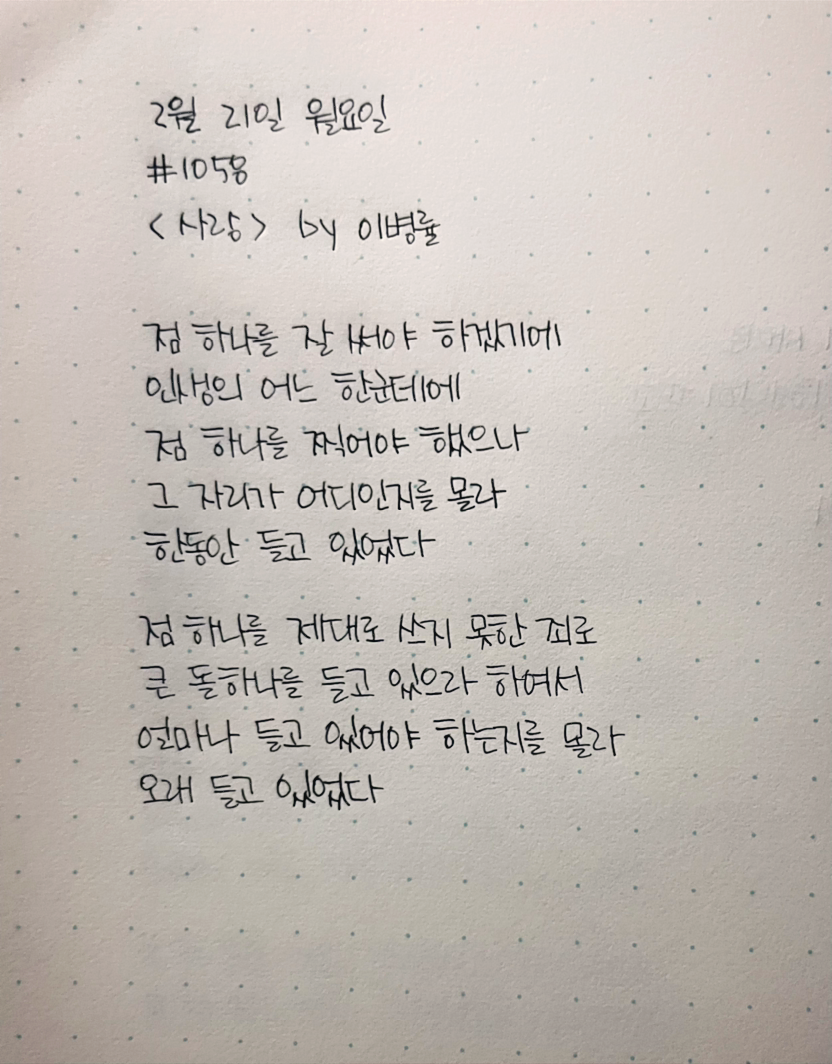 2월 21일 월요일
#1058
<사랑> by 이병률
점 하나를 잘 써야 하겠기에
인생의 어느 한군데에
점 하나를 찍어야 했으나
그 자리가 어디인지를 몰라
한동안 들고 있었다
점 하나를 제대로 쓰지 못한 죄로
큰 돌하나를 들고 있으라 하여서
얼마나 들고 있어야 하는지를 몰라
오래 들고 있었다